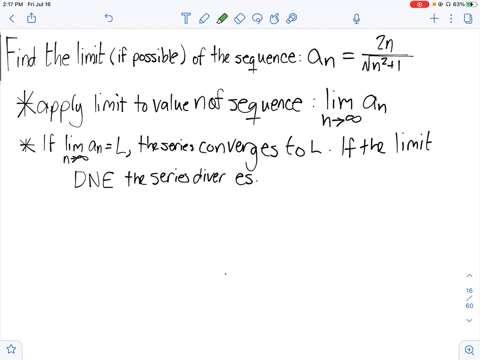 2:17 PM Fri Jul 16
63%
Find the limit (if possible) of the sequence: aₙ = 2n/√n²+1
*apply limit to value not sequence : lim n→∞ aₙ
* If lim n→∞ aₙ = L, the series converges to L. If the limit
DNE the series diver es.
16
/
60